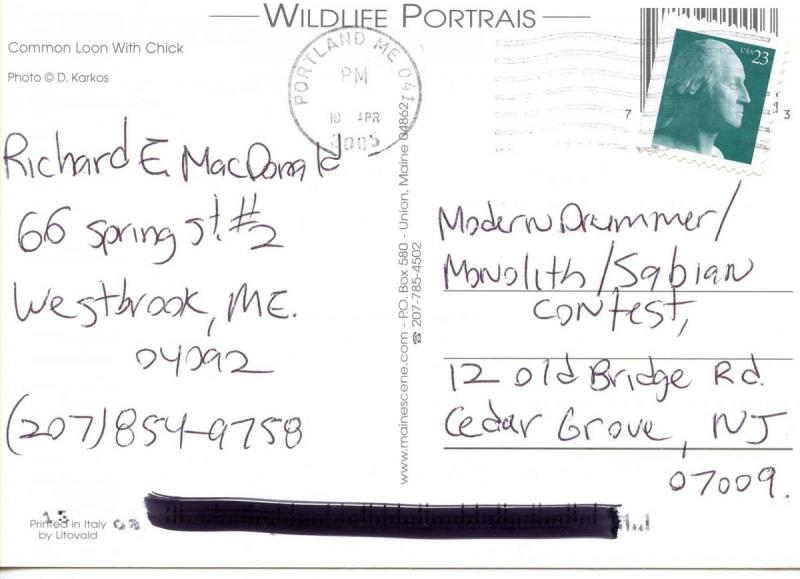 WILDLIFE PORTRAIS
Common Loon With Chick
Photo © D. Karkos
PORTLAND ME 041
PM
10 APR
2005
USA 23
7
3
Richard E. MacDonald
66 Spring St. #2
Westbrook, ME.
04092
(207) 854-9758
www.mainescene.com - P.O. Box 580 - Union, Maine 04862
☎ 207-785-4502
Modern Drummer/
Monolith/Sabian
Contest,
12 Old Bridge Rd.
Cedar Grove, NJ
07009.
Printed in Italy
by Litovald